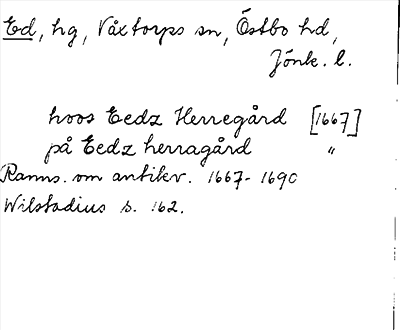 Ed, hg, Våxtorps sn, Östbo hd,
Jönk. l.
hoos Eedz Herregård [1667]
på Eedz herragård "
Ranns. om antikv. 1667-1690
Wilstadius s. 162.